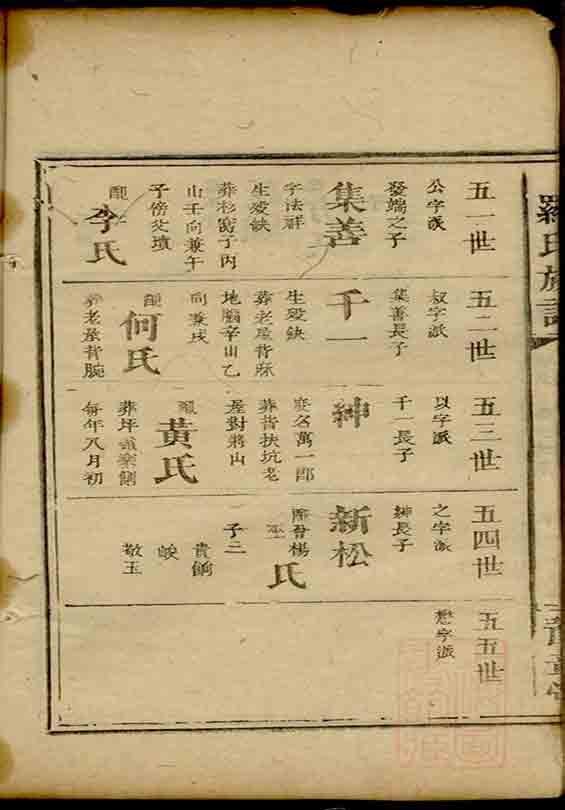 羅氏族譜
五一世
公字派
發端之子
集善
字法祥
生殁缺
葬杉窩子丙
山壬向兼午
子傍父墳
配
李氏
五二世
叔字派
集善長子
千一
生殁缺
葬老屋背蔴
地嘴辛山乙
向兼戌
配
何氏
葬老屋背腕
五三世
以字派
千一長子
紳
妾名萬一郎
葬背扶坑老
屋對將山
配
黃氏
葬坪 側
每年八月初
五四世
之字派
紳長子
新松
楊
巫
氏
子二
貴
峻
敬玉
五五世
懋字派